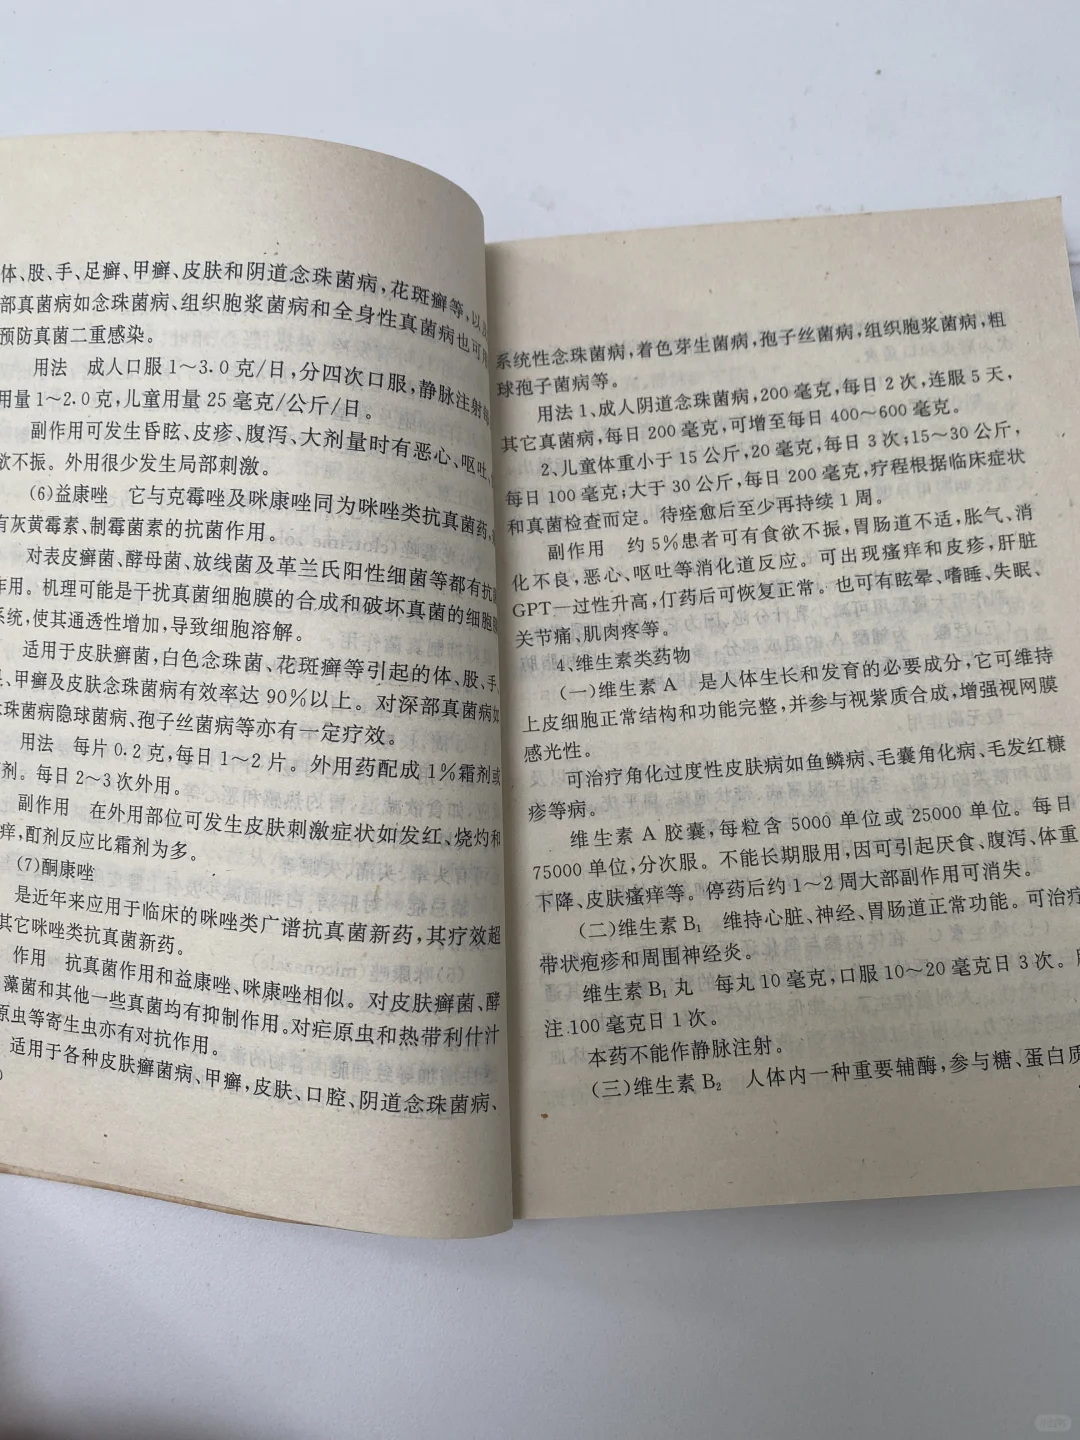 体、股、手、足癣、甲癣、皮肤和阴道念珠菌病,花斑癣等,以
部真菌病如念珠菌病、组织胞浆菌病和全身性真菌病也可
预防真菌二重感染。
用法 成人口服1~3.0克/日,分四次口服,静脉注射每
用量1~2.0克,儿童用量25毫克/公斤/日。
副作用可发生昏眩、皮疹、腹泻、大剂量时有恶心、呕吐、
欲不振。外用很少发生局部刺激。
(6)益康唑 它与克霉唑及咪康唑同为咪唑类抗真菌药,
有灰黄霉素、制霉菌素的抗菌作用。
对表皮癣菌、酵母菌、放线菌及革兰氏阳性细菌等都有抗
作用。机理可能是干扰真菌细胞膜的合成和破坏真菌的细胞
系统,使其通透性增加,导致细胞溶解。
适用于皮肤癣菌,白色念珠菌、花斑癣等引起的体、股、手、
甲癣及皮肤念珠菌病有效率达90%以上。对深部真菌病如
念珠菌病隐球菌病、孢子丝菌病等亦有一定疗效。
用法 每片0.2克,每日1~2片。外用药配成1%霜剂或
剂。每日2~3次外用。
副作用 在外用部位可发生皮肤刺激症状如发红、烧灼和
痒,酊剂反应比霜剂为多。
(7)酮康唑
是近年来应用于临床的咪唑类广谱抗真菌新药,其疗效超
其它咪唑类抗真菌新药。
作用 抗真菌作用和益康唑、咪康唑相似。对皮肤癣菌、酵
藻菌和其他一些真菌均有抑制作用。对疟原虫和热带利什汁
原虫等寄生虫亦有对抗作用。
适用于各种皮肤癣菌病、甲癣,皮肤、口腔、阴道念珠菌病、
系统性念珠菌病,着色芽生菌病,孢子丝菌病,组织胞浆菌病,粗
球孢子菌病等。
用法1、成人阴道念珠菌病,200毫克,每日2次,连服5天,
其它真菌病,每日200毫克,可增至每日400~600毫克。
2、儿童体重小于15公斤,20毫克,每日3次;15~30公斤,
每日100毫克;大于30公斤,每日200毫克,疗程根据临床症状
和真菌检查而定。待痊愈后至少再持续1周。
副作用 约5%患者可有食欲不振,胃肠道不适,胀气、消
化不良,恶心、呕吐等消化道反应。可出现瘙痒和皮疹,肝脏
GPT一过性升高,仃药后可恢复正常。也可有眩晕、嗜睡、失眠、
关节痛、肌肉疼等。
4、维生素类药物
(一)维生素A 是人体生长和发育的必要成分,它可维持
上皮细胞正常结构和功能完整,并参与视紫质合成,增强视网膜
感光性。
可治疗角化过度性皮肤病如鱼鳞病、毛囊角化病、毛发红糠
疹等病。
维生素A胶囊,每粒含5000单位或25000单位。每日
75000单位,分次服。不能长期服用,因可引起厌食、腹泻、体重
下降、皮肤瘙痒等。停药后约1~2周大部副作用可消失。
(二)维生素B₁ 维持心脏、神经、胃肠道正常功能。可治疗
带状疱疹和周围神经炎。
维生素B₁丸 每丸10毫克,口服10~20毫克日3次。
注100毫克日1次。
本药不能作静脉注射。
(三)维生素B₂ 人体内一种重要辅酶,参与糖、蛋白质